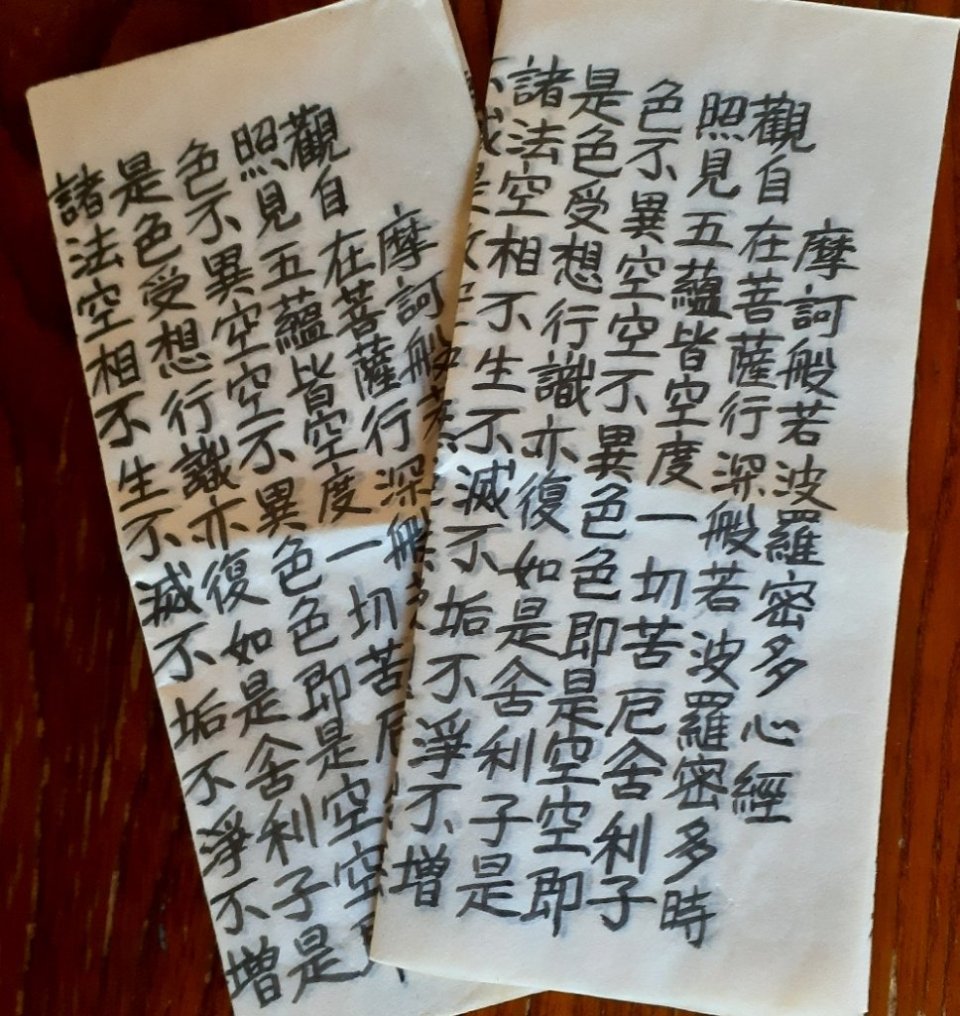 摩訶般若波羅密多心經
觀自在菩薩行深般若波羅密多時
照見五蘊皆空度一切苦厄舍利子
色不異空空不異色色即是空空即
是色受想行識亦復如是舍利子是
諸法空相不生不滅不垢不淨不增
摩訶般
觀自在菩薩行深般
照見五蘊皆空度一切苦厄
色不異空空不異色色即是空空
是色受想行識亦復如是舍利子是
諸法空相不生不滅不垢不淨不增